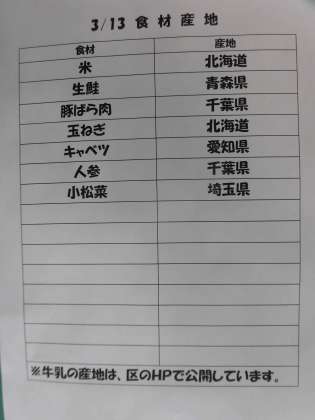 3/13 食材産地
食材 産地
米 北海道
生鮭 青森県
豚ばら肉 千葉県
玉ねぎ 北海道
キャベツ 愛知県
人参 千葉県
小松菜 埼玉県
※牛乳の産地は、区のHPで公開しています。